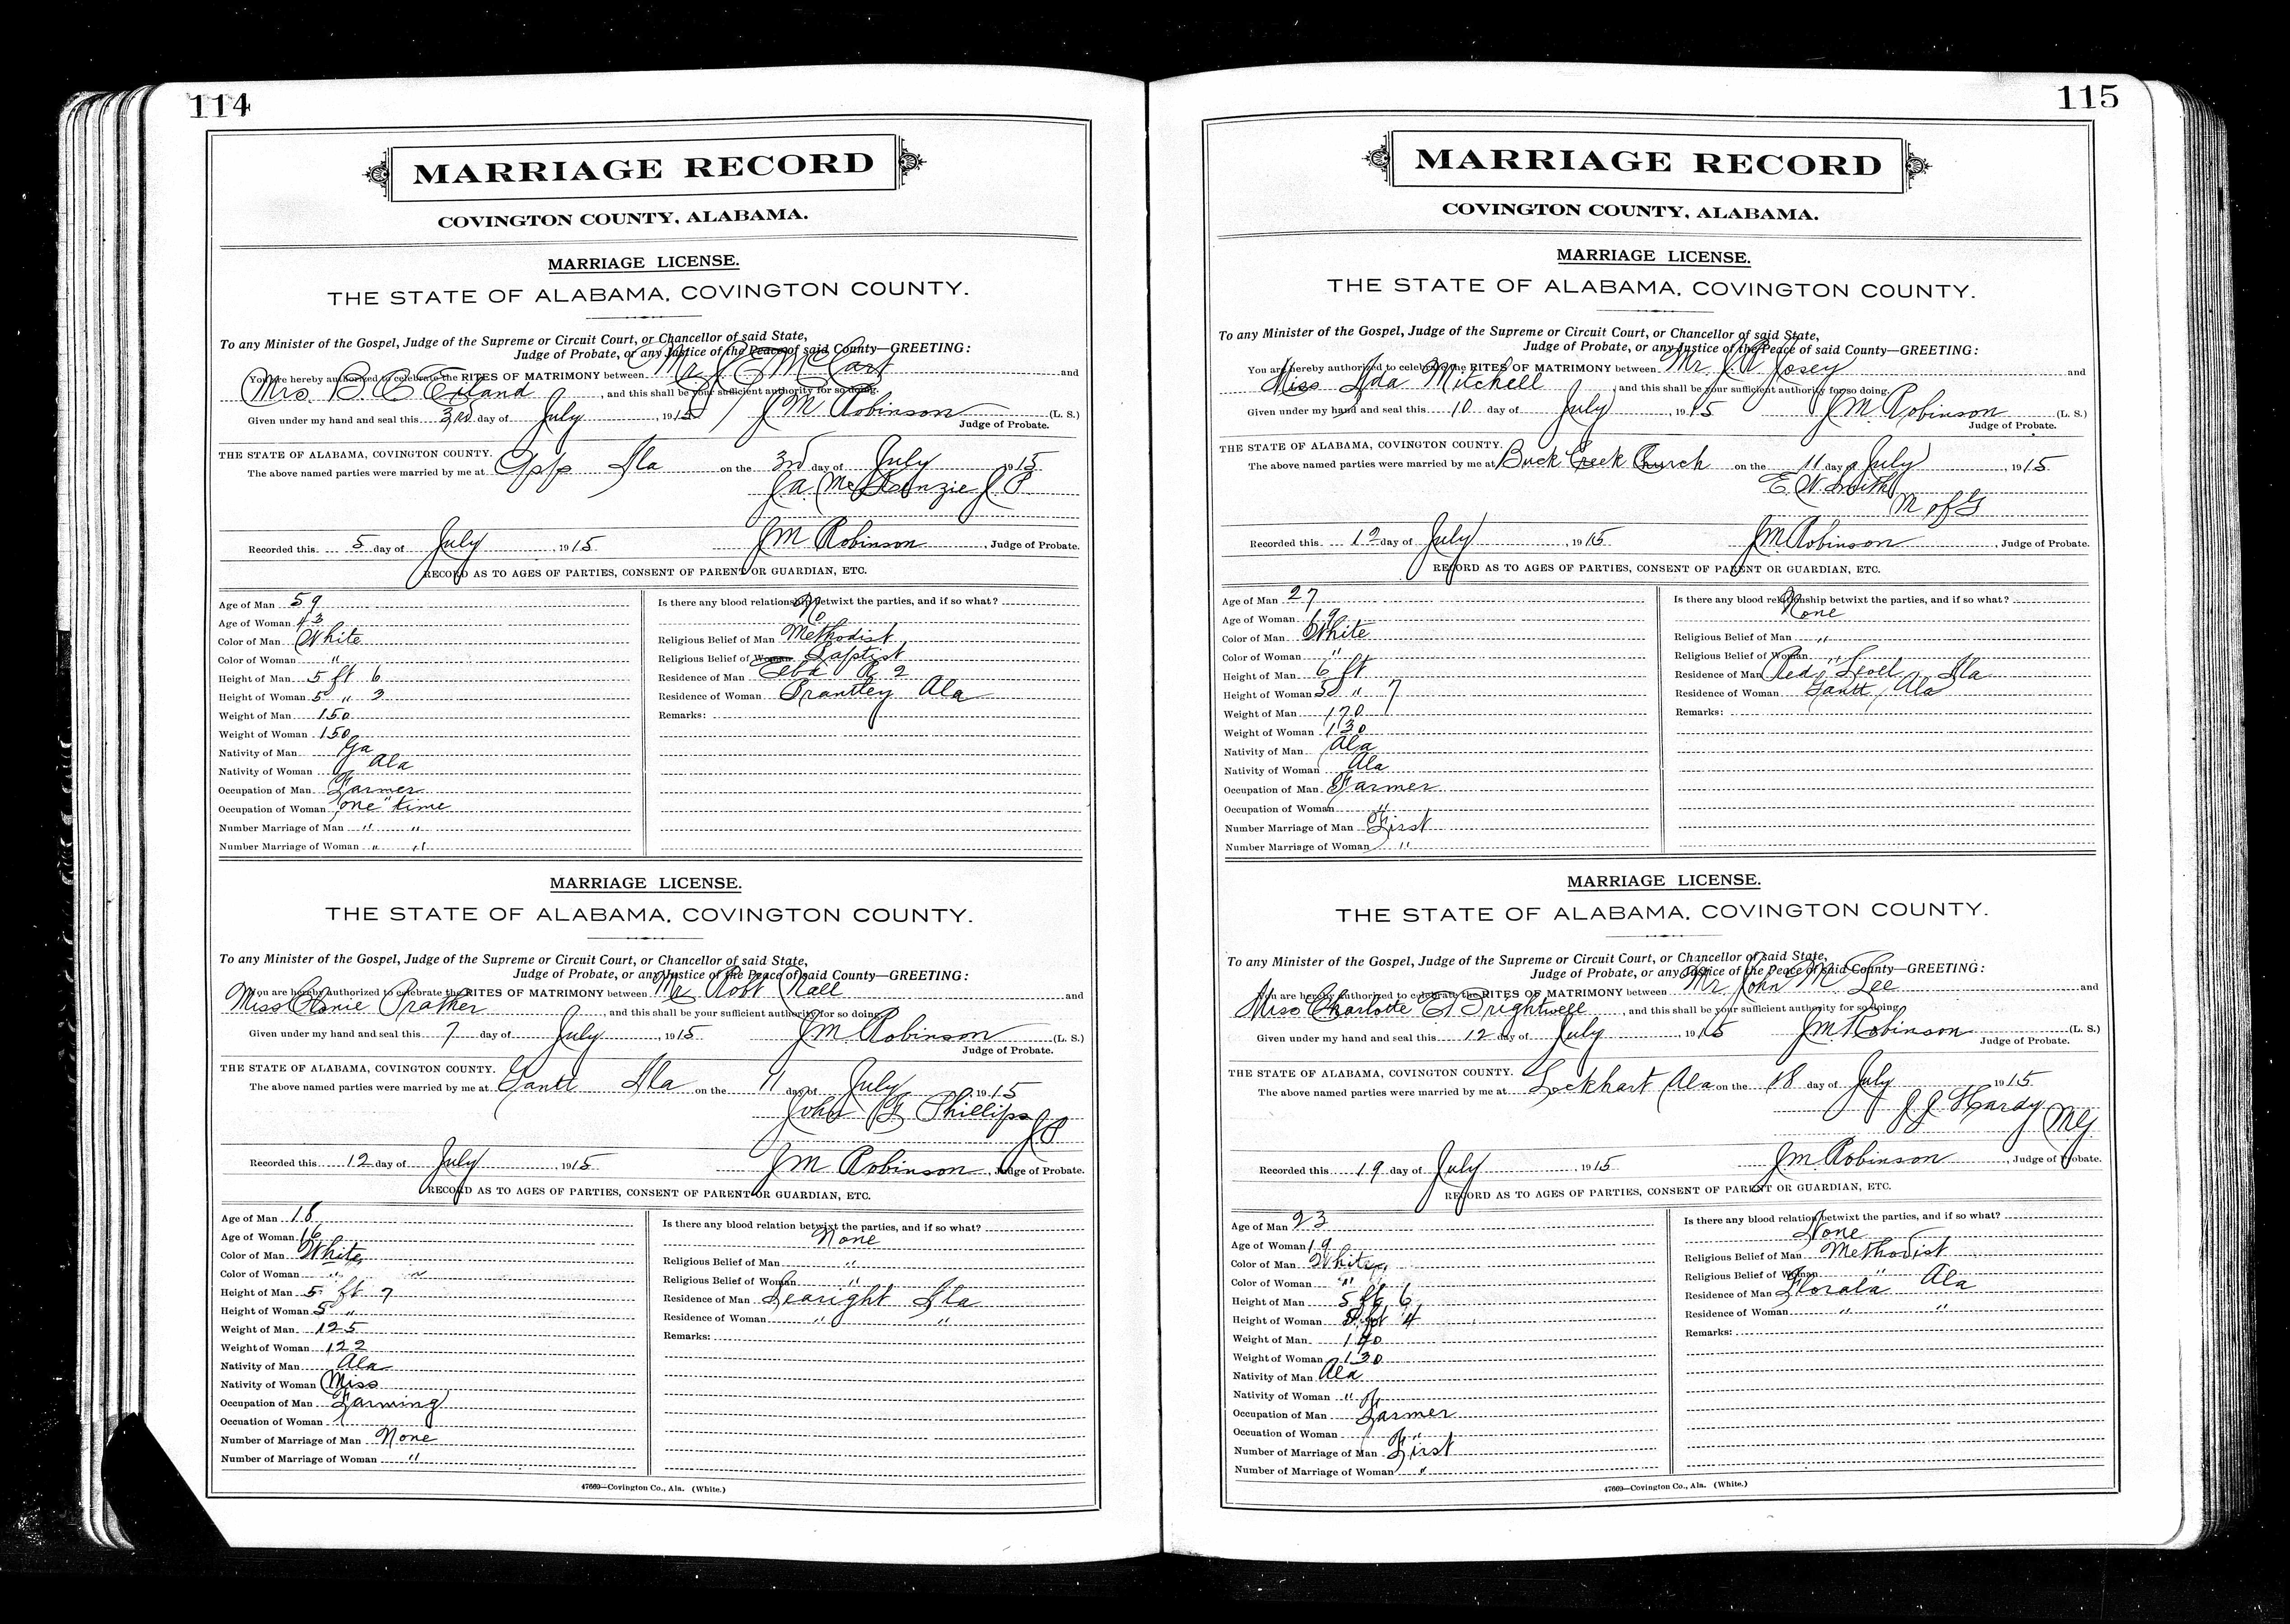 114
MARRIAGE RECORD
COVINGTON COUNTY, ALABAMA.
MARRIAGE LICENSE.
THE STATE OF ALABAMA, COVINGTON COUNTY.
To any Minister of the Gospel, Judge of the Supreme or Circuit Court, or Chancellor of said State,
Judge of Probate, or any Justice of the Peace of said County—GREETING:
You are hereby authorized to celebrate the RITES OF MATRIMONY between Mr. J E McCart and
Mrs. B C Eiland, and this shall be your sufficient authority for so doing.
Given under my hand and seal this 3rd day of July, 1915 J M Robinson (L. S.)
Judge of Probate.
THE STATE OF ALABAMA, COVINGTON COUNTY.
The above named parties were married by me at Opp Ala on the 3rd day of July 1915
J. A. McKenzie J P
Recorded this 5 day of July, 1915 J M Robinson, Judge of Probate.
RECORD AS TO AGES OF PARTIES, CONSENT OF PARENT OR GUARDIAN, ETC.
Age of Man 59
Age of Woman 43
Color of Man White
Color of Woman "
Height of Man 5 ft 6
Height of Woman 5 " 3
Weight of Man 150
Weight of Woman 150
Nativity of Man Ga
Nativity of Woman Ala
Occupation of Man Farmer
Occupation of Woman "one" time
Number Marriage of Man " "
Number Marriage of Woman " "
Is there any blood relationship betwixt the parties, and if so what?
No
Religious Belief of Man Methodist
Religious Belief of Woman Baptist
Residence of Man Elba R 2
Residence of Woman Brantley Ala
Remarks:
MARRIAGE LICENSE.
THE STATE OF ALABAMA, COVINGTON COUNTY.
To any Minister of the Gospel, Judge of the Supreme or Circuit Court, or Chancellor of said State,
Judge of Probate, or any Justice of the Peace of said County—GREETING:
You are hereby authorized to celebrate the RITES OF MATRIMONY between Mr Robt Nall and
Miss Prather, and this shall be your sufficient authority for so doing.
Given under my hand and seal this 7 day of July, 1915 J M Robinson (L. S.)
Judge of Probate.
THE STATE OF ALABAMA, COVINGTON COUNTY.
The above named parties were married by me at Gantt Ala on the 11 day of July, 1915
John F Phillips
J P
Recorded this 12 day of July, 1915 J M Robinson, Judge of Probate.
RECORD AS TO AGES OF PARTIES, CONSENT OF PARENT OR GUARDIAN, ETC.
Age of Man 18
Age of Woman 16
Color of Man White
Color of Woman " "
Height of Man 5 ft 7
Height of Woman 5 "
Weight of Man 125
Weight of Woman 122
Nativity of Man Ala
Nativity of Woman Miss
Occupation of Man Farming
Occuation of Woman
Number of Marriage of Man None
Number of Marriage of Woman "
Is there any blood relation betwixt the parties, and if so what?
None
Religious Belief of Man "
Religious Belief of Woman "
Residence of Man Searight Ala
Residence of Woman " "
Remarks:
47669—Covington Co., Ala. (White.)
115
MARRIAGE RECORD
COVINGTON COUNTY, ALABAMA.
MARRIAGE LICENSE.
THE STATE OF ALABAMA, COVINGTON COUNTY.
To any Minister of the Gospel, Judge of the Supreme or Circuit Court, or Chancellor of said State,
Judge of Probate, or any Justice of the Peace of said County—GREETING:
You are hereby authorized to celebrate the RITES OF MATRIMONY between Mr. Josey and
Miss Ida Mitchell, and this shall be your sufficient authority for so doing.
Given under my hand and seal this 10 day of July, 1915 J M. Robinson (L. S.)
Judge of Probate.
THE STATE OF ALABAMA, COVINGTON COUNTY.
The above named parties were married by me at Buck Creek Church on the 11 day of July, 1915
E W Smith
M of G
Recorded this 12 day of July, 1915 J M Robinson, Judge of Probate.
RECORD AS TO AGES OF PARTIES, CONSENT OF PARENT OR GUARDIAN, ETC.
Age of Man 27
Age of Woman 19
Color of Man White
Color of Woman "
Height of Man 6 ft
Height of Woman 5 " 7
Weight of Man 170
Weight of Woman 130
Nativity of Man Ala
Nativity of Woman Ala
Occupation of Man Farmer
Occupation of Woman "
Number Marriage of Man First
Number Marriage of Woman "
Is there any blood relationship betwixt the parties, and if so what?
None
Religious Belief of Man "
Religious Belief of Woman "
Residence of Man Red Level Ala
Residence of Woman Gantt, Ala
Remarks:
MARRIAGE LICENSE.
THE STATE OF ALABAMA, COVINGTON COUNTY.
To any Minister of the Gospel, Judge of the Supreme or Circuit Court, or Chancellor of said State,
Judge of Probate, or any Justice of the Peace of said County—GREETING:
You are hereby authorized to celebrate the RITES OF MATRIMONY between Mr. John M Lee and
Miss Charlotte E Brightwell, and this shall be your sufficient authority for so doing.
Given under my hand and seal this 12 day of July, 1915 J M. Robinson (L. S.)
Judge of Probate.
THE STATE OF ALABAMA, COVINGTON COUNTY.
The above named parties were married by me at Lockhart Ala on the 18 day of July 1915
J J Hardy M G.
Recorded this 19 day of July, 1915 J M. Robinson, Judge of Probate.
RECORD AS TO AGES OF PARTIES, CONSENT OF PARENT OR GUARDIAN, ETC.
Age of Man 23
Age of Woman 19
Color of Man White
Color of Woman "
Height of Man 5 ft 6
Height of Woman 5 ft 4
Weight of Man 140
Weight of Woman 130
Nativity of Man Ala
Nativity of Woman "
Occupation of Man Farmer
Occuation of Woman "
Number of Marriage of Man First
Number of Marriage of Woman "
Is there any blood relation betwixt the parties, and if so what?
None
Religious Belief of Man Methodist
Religious Belief of Woman "
Residence of Man Florala Ala
Residence of Woman " "
Remarks:
47669—Covington Co., Ala. (White.)